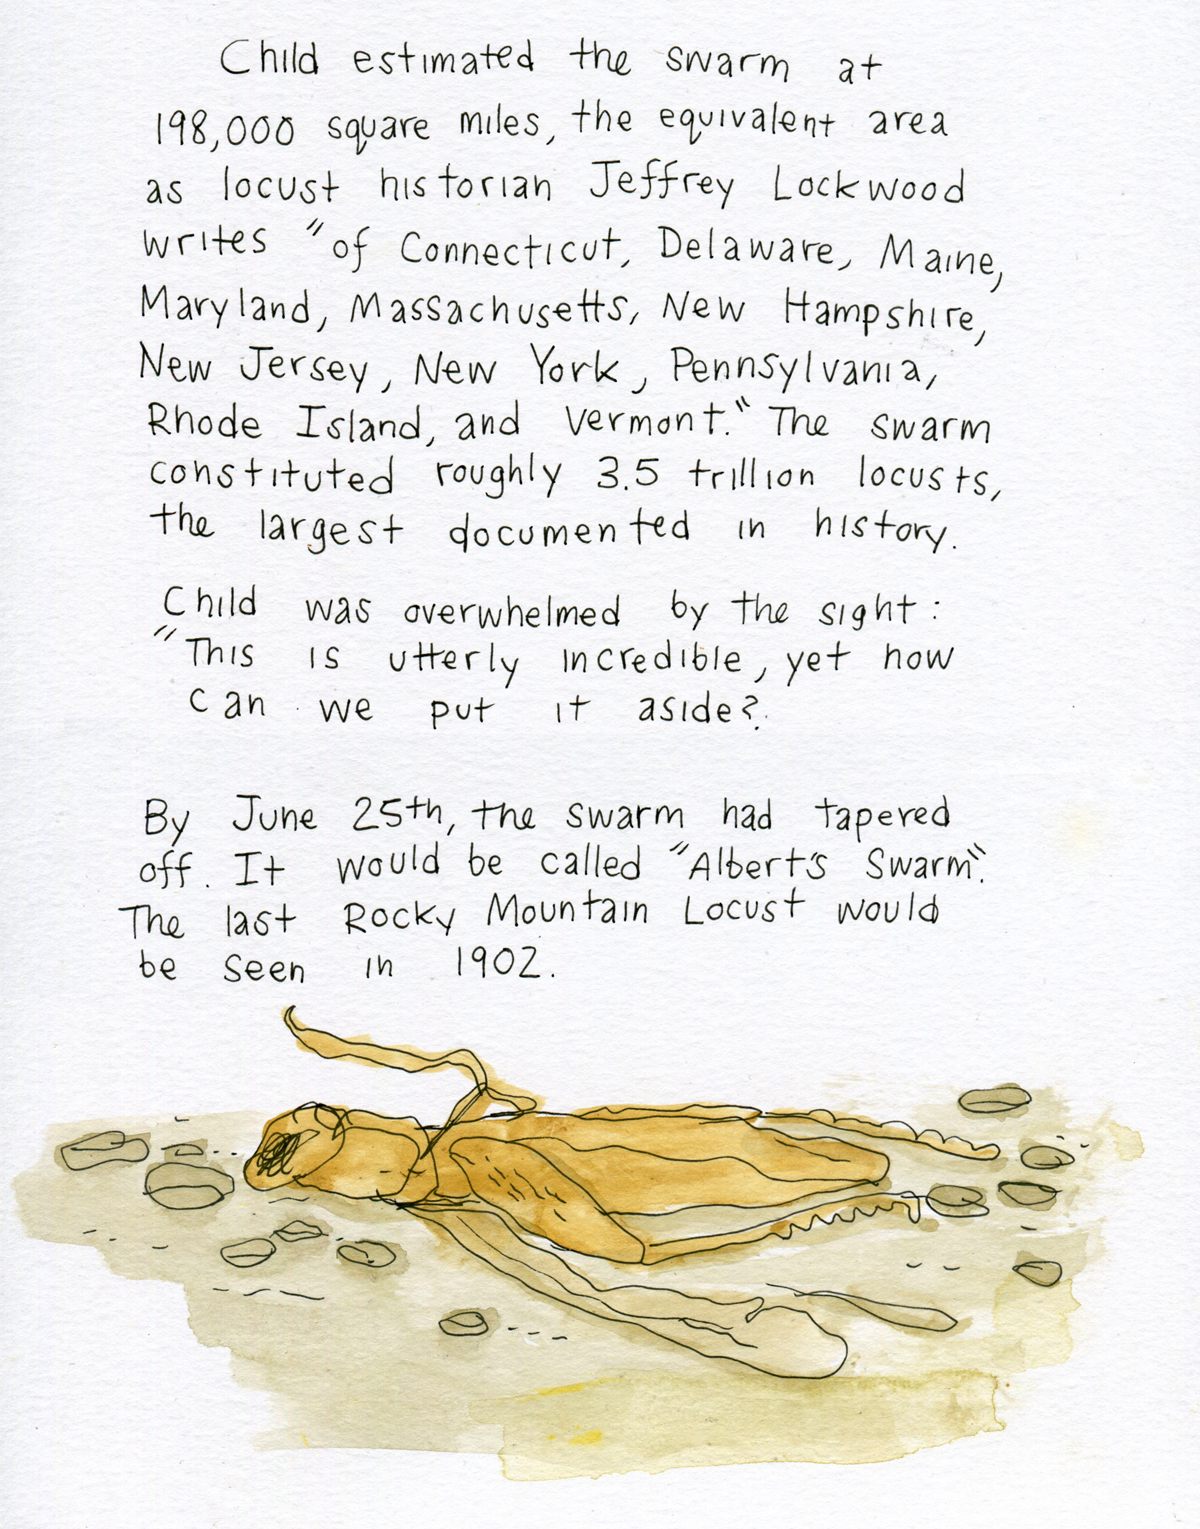 Child estimated the swarm at
198,000 square miles, the equivalent area
as locust historian Jeffrey Lockwood
writes "of Connecticut, Delaware, Maine,
Maryland, Massachusetts, New Hampshire,
New Jersey, New York, Pennsylvania,
Rhode Island, and Vermont." The swarm
constituted roughly 3.5 trillion locusts,
the largest documented in history.
Child was overwhelmed by the sight:
"This is utterly incredible, yet how
can we put it aside?
By June 25th, the swarm had tapered
off. It would be called "Albert's Swarm".
The last Rocky Mountain Locust would
be seen in 1902.